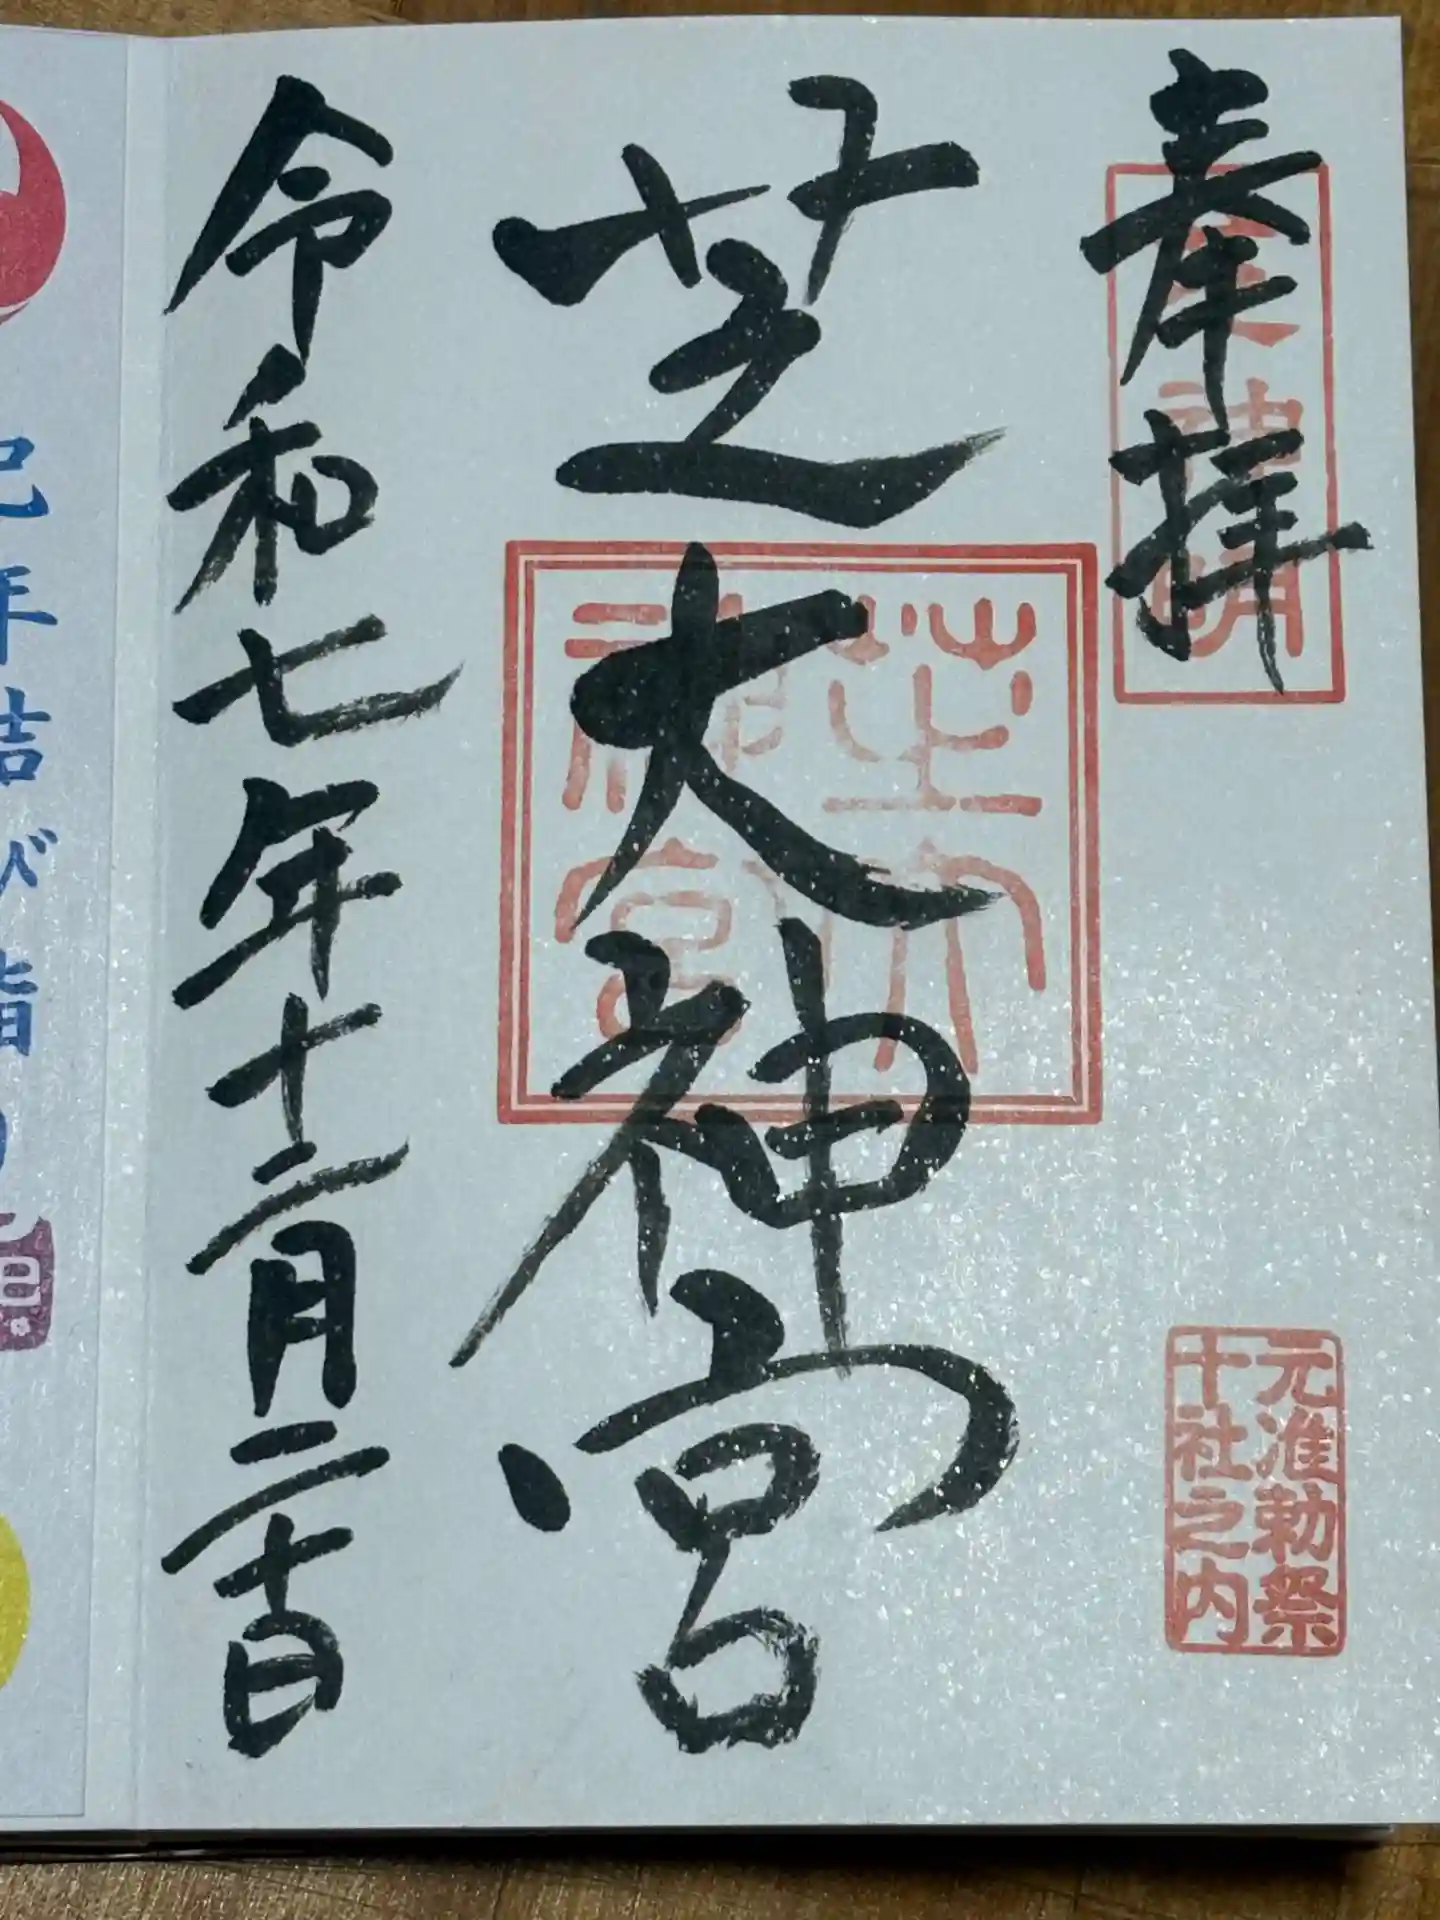 奉拝
神明
元准勅祭
十社之内
芝大神宮
芝大
神宮
令和七年十二月二十日
巳年結び詣り